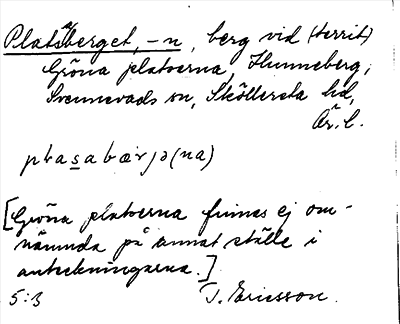 Platsaberget, -n, berg vid (territ)
Gröna platserna, Hunneberg,
Svennevads sn, Sköllersta hd,
Ör. l.
plasabærjə(na)
[Gröna platserna finnas ej om-
nämnda på annat ställe i
anteckningarna.]
5:3 J. Ericsson.